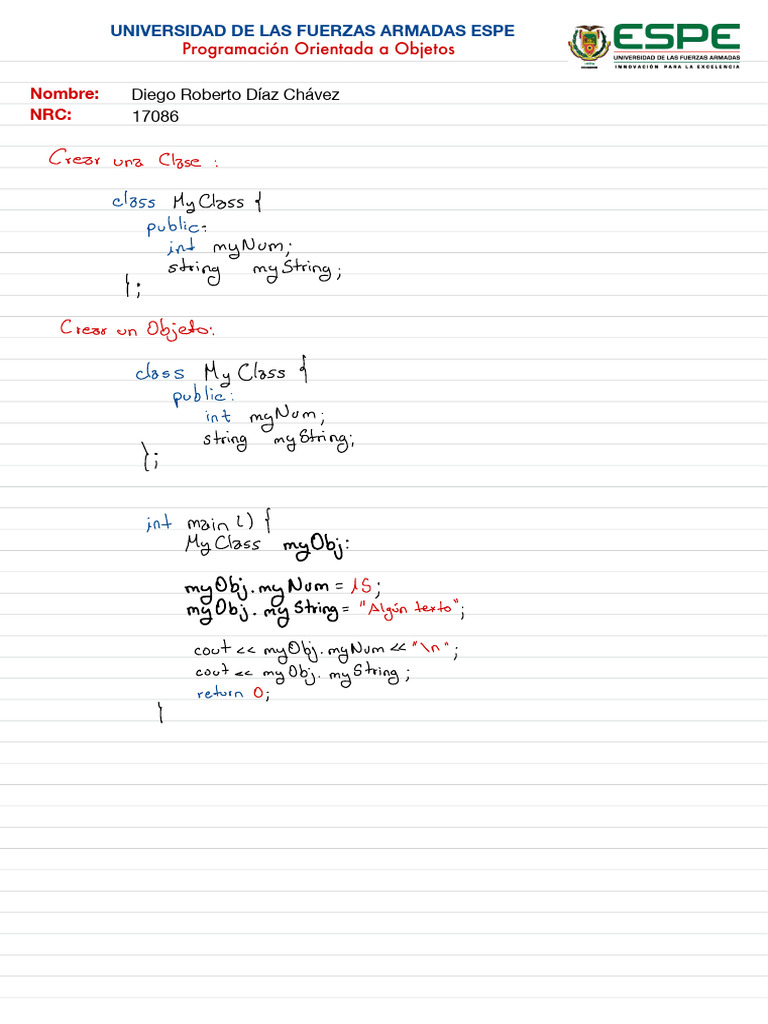 UNIVERSIDAD DE LAS FUERZAS ARMADAS ESPE
Programación Orientada a Objetos
ESPE
UNIVERSIDAD DE LAS FUERZAS ARMADAS
INNOVACIÓN PARA LA EXCELENCIA
Nombre: Diego Roberto Díaz Chávez
NRC: 17086
Crear una Clase :
class MyClass {
public:
int myNum;
string myString;
};
Crear un Objeto:
class MyClass {
public:
int myNum;
string myString;
};
int main() {
MyClass myObj:
myObj.myNum = 15;
myObj.myString = "Algún texto";
cout << myObj.myNum << "\n";
cout << myObj.myString;
return 0;
}